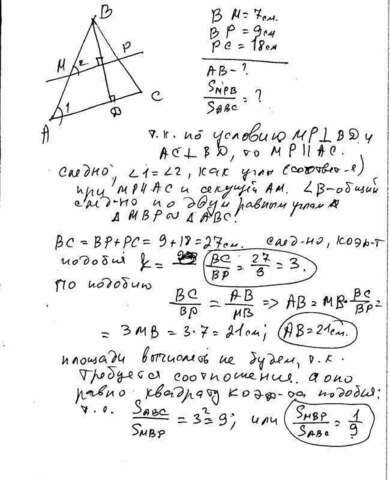 B
M 2 P
1 D C
A
BM = 7см.
BP = 9см
PC = 18см
AB - ?
S_MPB / S_ABC = ?
т.к. по условию MP⊥BD и
AC⊥BD, то MP∥AC.
след-но, ∠1=∠2, как углы (соответ-е)
при MP∥AC и секущей AM. ∠B-общий
след-но по двум равным углам
ΔMBP∾ΔABC.
BC=BP+PC=9+18=27см. след-но, коэф-т
подобия k = BC/BP = 27/9 = 3.
По подобию
BC/BP = AB/MB => AB=MB·BC/BP=
= 3MB=3·7=21см; AB=21см.
площади вычислять не будем, т.к.
требуется соотношение. а оно
равно квадрату коэф-та подобия:
т.е. S_ABC/S_MBP = 3²=9; или S_MBP/S_ABC = 1/9